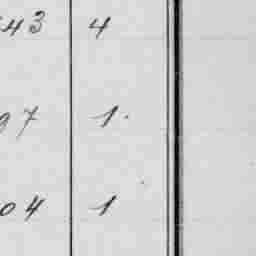 43 4
97 1.
04 1